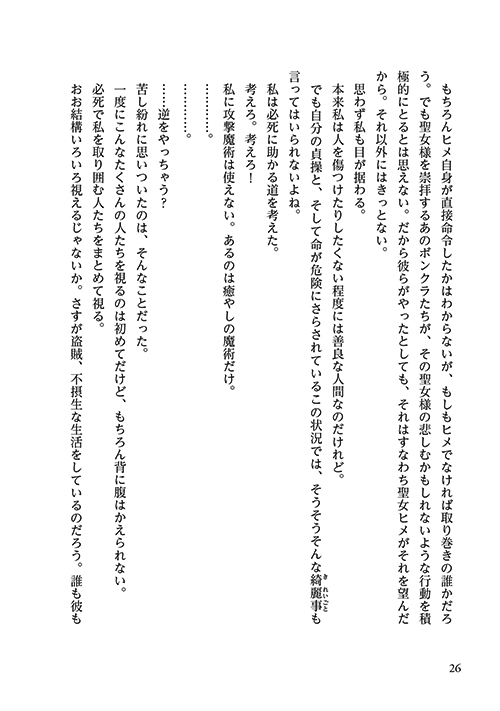 もちろんヒメ自身が直接命令したかはわからないが、もしもヒメでなければ取り巻きの誰かだろ
う。でも聖女様を崇拝するあのボンクラたちが、その聖女様の悲しむかもしれないような行動を積
極的にとるとは思えない。だから彼らがやったとしても、それはすなわち聖女ヒメがそれを望んだ
から。それ以外にはきっとない。
思わず私も目が据わる。
本来私は人を傷つけたりしたくない程度には善良な人間なのだけれど。
でも自分の貞操と、そして命が危険にさらされているこの状況では、そうそうそんな綺麗事も
きれいごと
言ってはいられないよね。
私は必死に助かる道を考えた。
考えろ。考えろ!
私に攻撃魔術は使えない。あるのは癒やしの魔術だけ。
…………。
…………。
……逆をやっちゃう?
苦し紛れに思いついたのは、そんなことだった。
一度にこんなたくさんの人たちを視るのは初めてだけど、もちろん背に腹はかえられない。
必死で私を取り囲む人たちをまとめて視る。
おお結構いろいろ視えるじゃないか。さすが盗賊、不摂生な生活をしているのだろう。誰も彼も
26